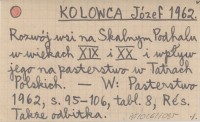 KOLOWCA Józef 1962.
Rozwój wsi na Skalnym Podhalu
w wiekach XIX i XX i wpływ
jego na pasterstwo w Tatrach
Polskich. — W: Pasterstwo
1962, s. 95-106, tabl. 8, Rés.
Także odbitka.